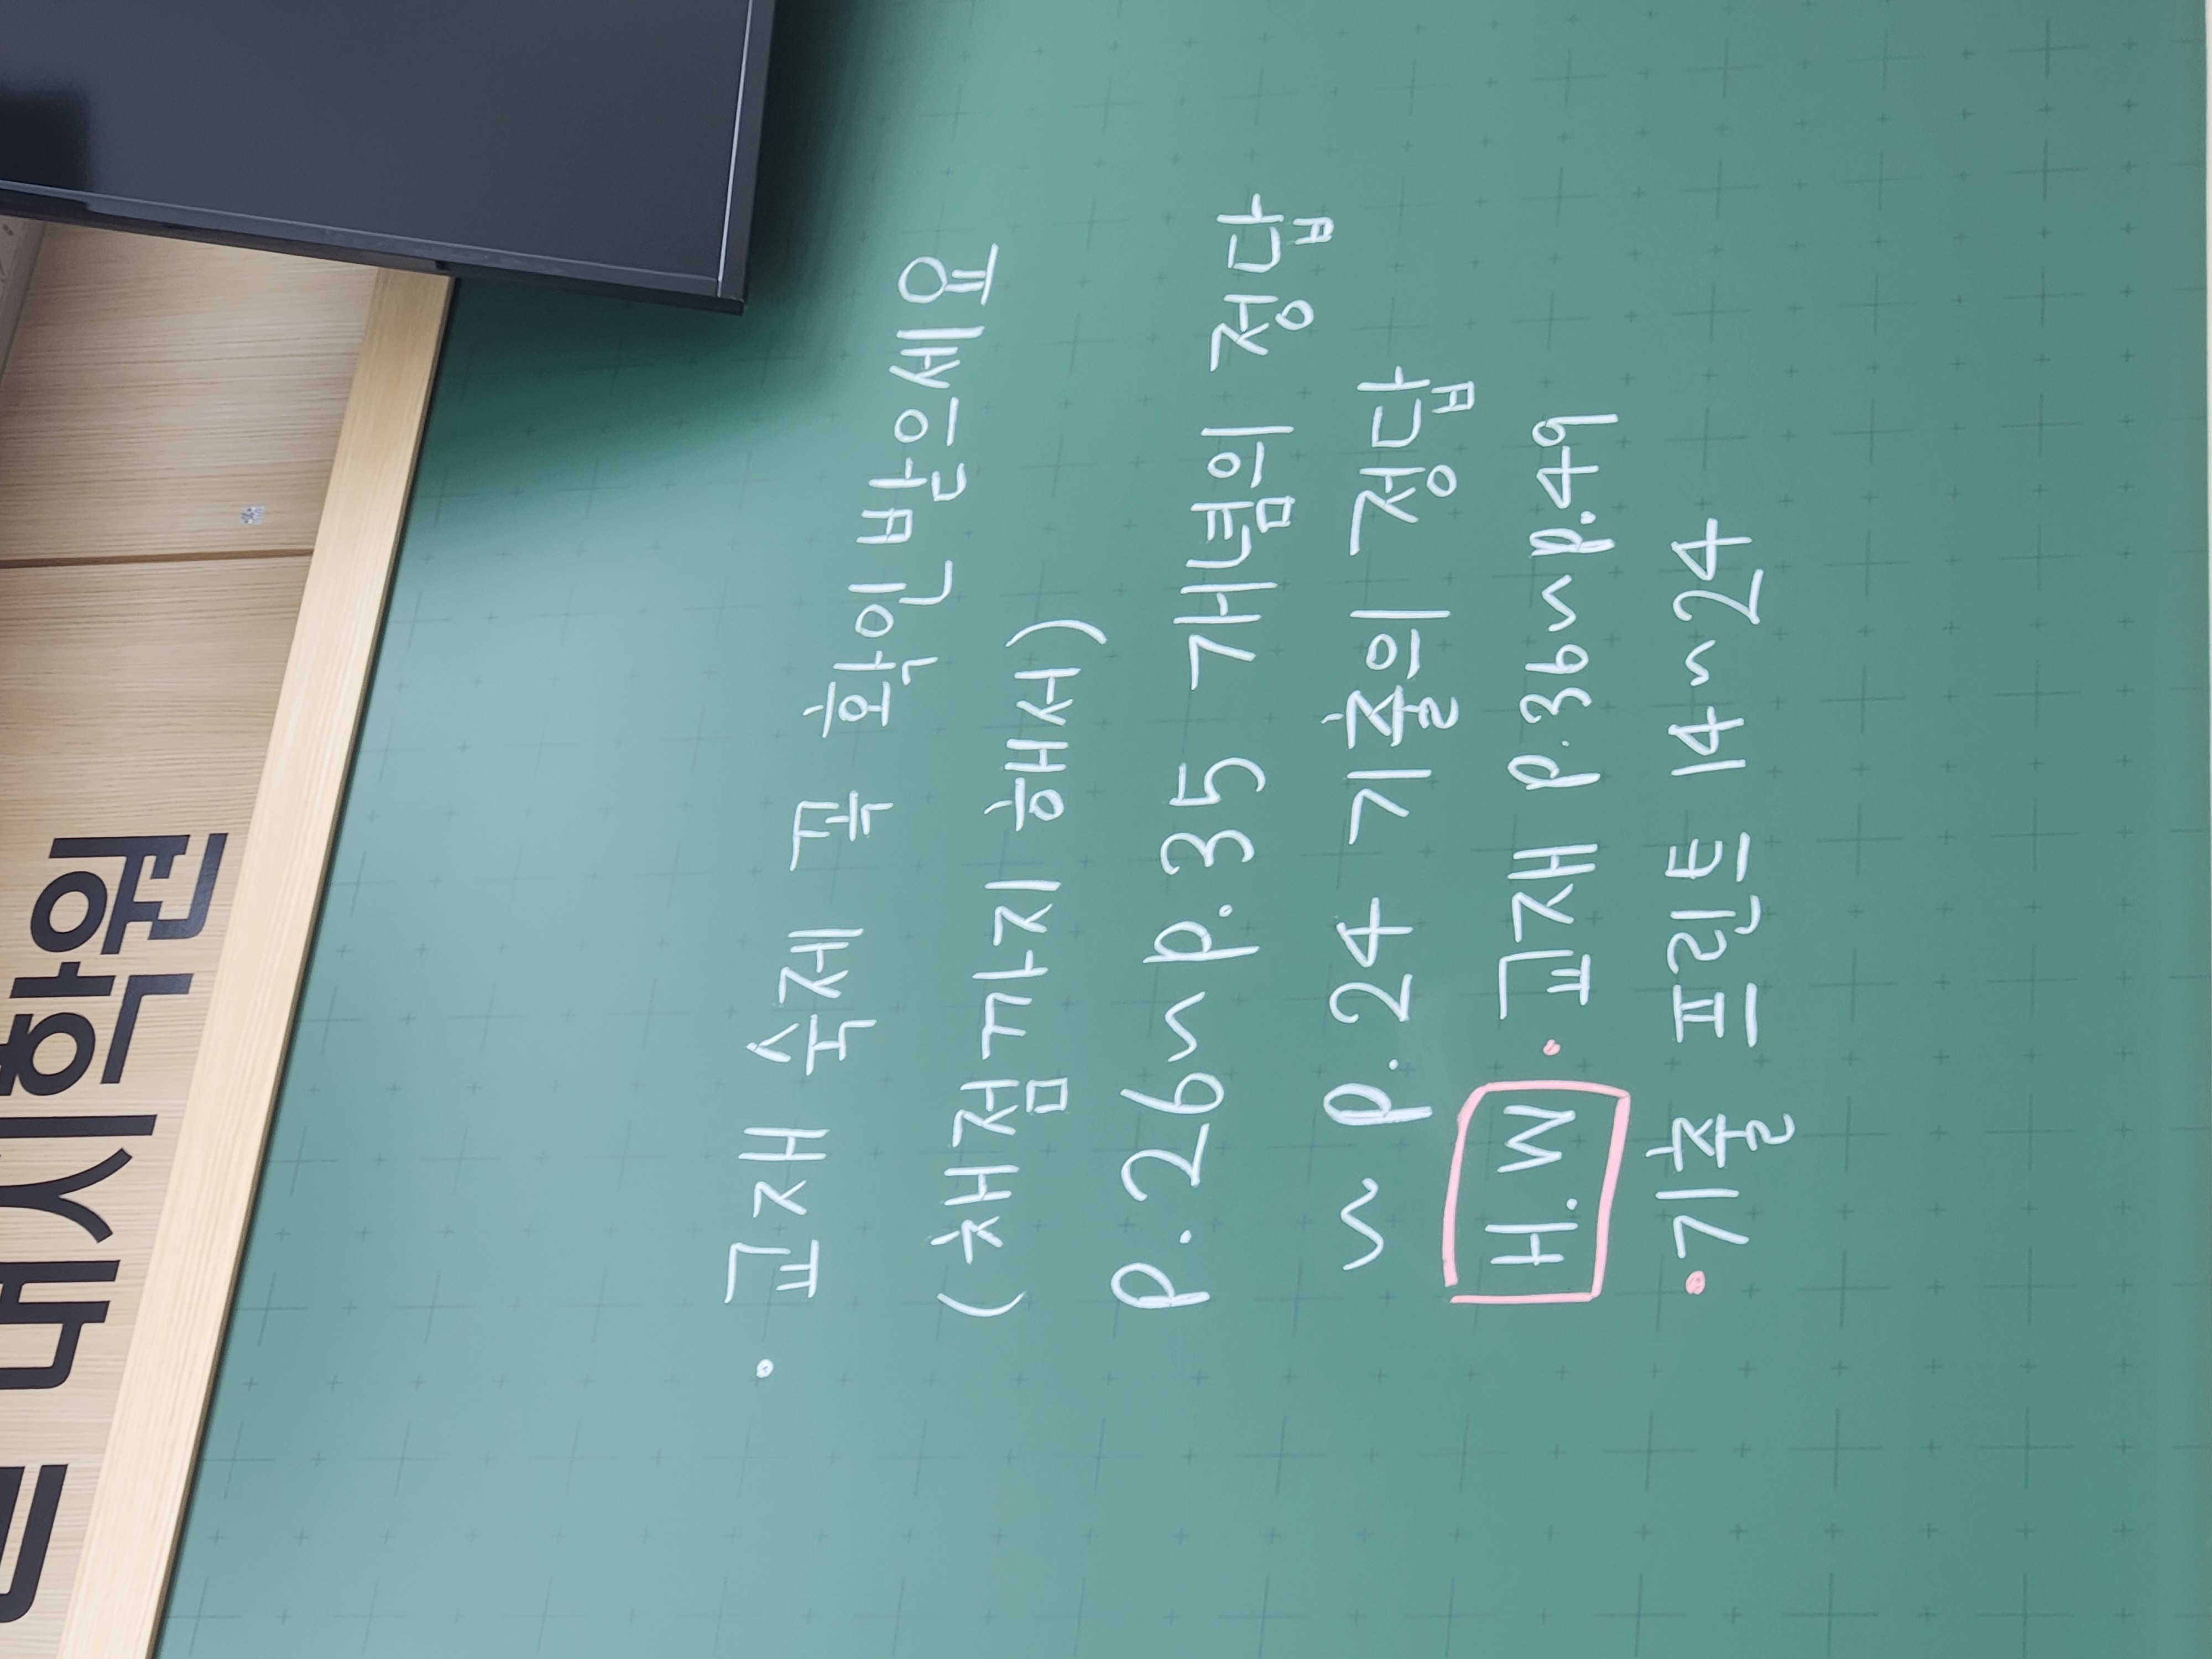 • 교재 숙제 꼬 확인 받은세요
(채점까지 해서)
p.26~p.35 개념의 정답
~ p.24 기출의 정답
H.W • 교재 p.36~p.49
• 기출 프린트 14~24